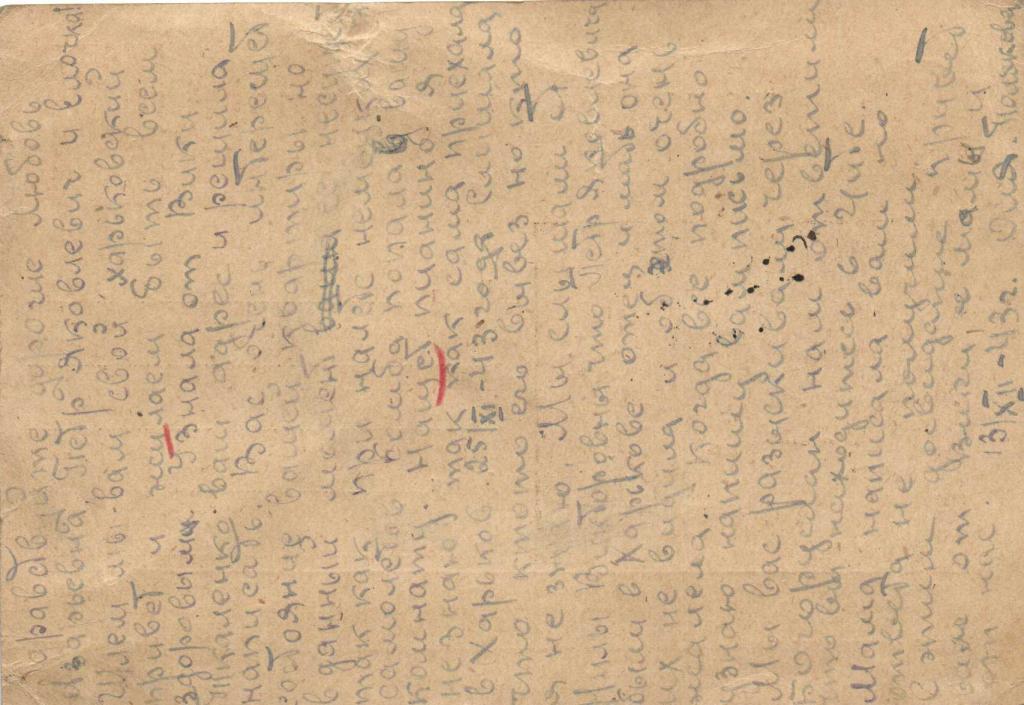 Здравствуйте дорогие Любовь
Лазарьевна, Пётр Яковлевич и Элочка!
Шлем мы вам свой харьковский
привет и желаем быть всем
здоровым. Узнала от Вики
Ткаленко ваш адрес и решила
написать. Вас очень интересует
состояние вашей квартиры но
в данный момент её неет
так как при налёте немецких
самолётов бомба попала в вашу
комнату. Нащёт пианино я
незнаю, так как сама приехала
в Харьков 25/XI-43 года Слышала
что ктото его вывез но кто
я не знаю. Мы слышали от
Нины Викторовны что Петра Яковлевича
были в Харькове отец и мать она
их не видила и об этом очень
жалела. Когда все подробно
узнаю напишу вам письмо.
Мы вас разыскивали через
Богоруслан нам ответили
что вы находитесь в Уфе.
Мама написала вам но
ответа не получили.
С этим досвидание привет
вам от и мамы и
от нас. 13/XII-43г. Оля. Полякова